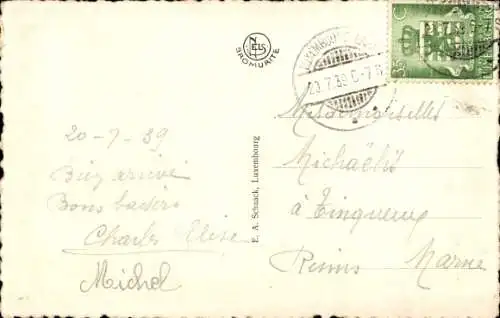 NELS
BROMURITE
35 C
23.7.39 6-7
20-7-39
Bien arrivé
Bons baisers
Charles Elise
Michel
E. A. Schaack, Luxembourg
Mesdemoiselles
Michaëlis
à Tinqueux
Reims Marne